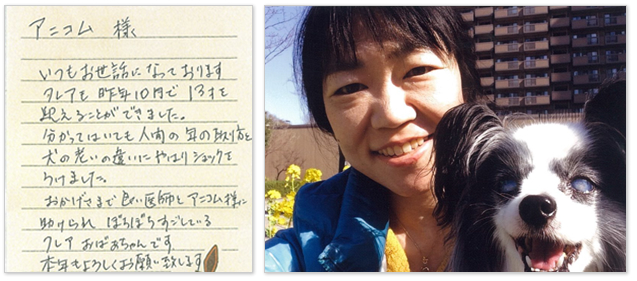 アニコム 様
いつもお世話になっております
クレアも 昨年10月で 13才を
迎えることができました。
分かってはいても人間の年の取り方と
犬の老いの違いにやはりショックを
うけました。
おかげさまで良い医師とアニコム様に
助けられ ぼちぼちすごしている
クレア おばあちゃんです
本年もよろしくお願い致します